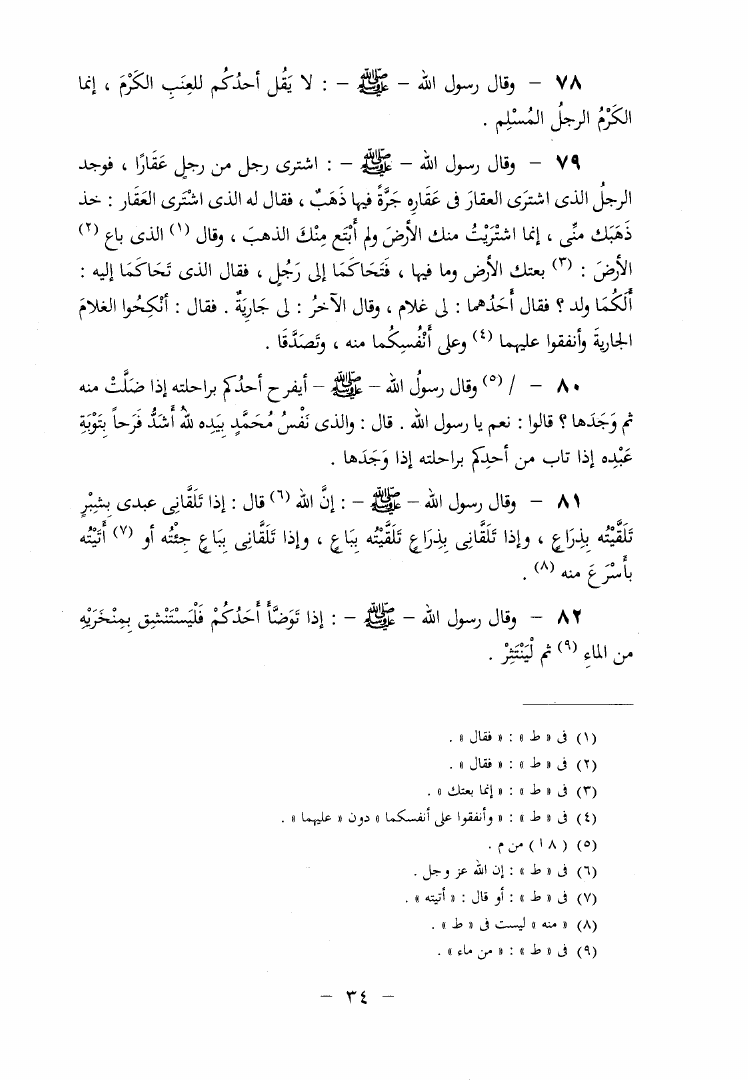 ٧٨ – وقال رسول الله – ﷺ – : لا يَقُل أحدُكُم للعِنَبِ الكَرْمَ ، إنما
الكَرْمُ الرجلُ المُسْلِم .
٧٩ – وقال رسول الله – ﷺ – : اشترى رجل من رجلٍ عَقَارًا ، فوجد
الرجلُ الذى اشترَى العقارَ فى عَقَارِه جَرَّةً فيها ذَهَبٌ ، فقال له الذى اشْتَرى العَقَار : خذ
ذَهَبَك منِّى ، إنما اشْتَرَيْتُ منك الأرضَ ولم أَبْتَع مِنْكَ الذهبَ ، وقال (١) الذى باع (٢)
الأرضَ : (٣) بعتك الأرض وما فيها ، فَتَحَاكَمَا إلى رَجُلٍ ، فقال الذى تَحَاكَمَا إليه :
أَلَكُمَا ولد ؟ فقال أَحَدُهما : لى غلام ، وقال الآخرُ : لى جَارِيَةٌ . فقال : أَنْكِحُوا الغلامَ
الجاريةَ وأنفقوا عليهما (٤) وعلى أَنْفُسِكُما منه ، وتَصَدَّقَا .
٨٠ – / (٥) وقال رسولُ الله – ﷺ – أيفرح أحدُكم براحلته إذا ضَلَّتْ منه
ثم وَجَدَها ؟ قالوا : نعم يا رسول الله . قال : والذى نَفْسُ مُحَمَّدٍ بِيَدِه للهُ أَشَدُّ فَرَحاً بِتَوْبَةِ
عَبْدِه إذا تاب من أحدِكم براحلته إذا وَجَدَها .
٨١ – وقال رسول الله – ﷺ – : إنَّ الله (٦) قال : إذا تَلَقَّانِى عبدى بِشِبْرٍ
تَلَقَّيْتُه بِذِرَاعٍ ، وإذا تَلَقَّانِى بِذِرَاعٍ تَلَقَّيْتُه بِبَاعٍ ، وإذا تَلَقَّانِى بِبَاعٍ جِئْتُه أو (٧) أَتَيْتُه
بأَسْرَعَ منه (٨) .
٨٢ – وقال رسول الله – ﷺ – : إذا تَوَضَّأَ أَحَدُكُمْ فَلْيَسْتَنْشِق بِمِنْخَرَيْهِ
من الماءِ (٩) ثم لْيَنْتَثِرْ .
(١) فى « ط » : « فقال » .
(٢) فى « ط » : « فقال » .
(٣) فى « ط » : « إنما بعتك » .
(٤) فى « ط » : « وأنفقوا على أنفسكما » دون « عليهما » .
(٥) ( ١٨ ) من م .
(٦) فى « ط » : إن الله عز وجل .
(٧) فى « ط » : أو قال : « أتيته » .
(٨) « منه » ليست فى « ط » .
(٩) فى « ط » : « من ماء » .
– ٣٤ –